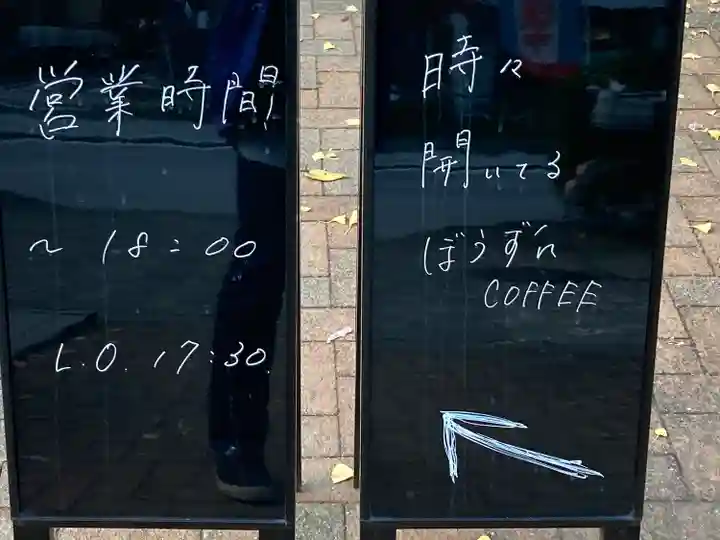 営業時間
~ 18:00
L.O. 17:30.
時々
開いてる
ぼうずん
COFFEE